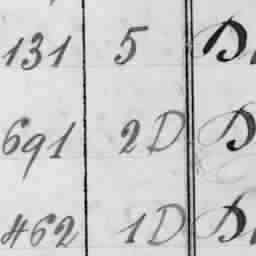 131 5
691 2D D
462 1D